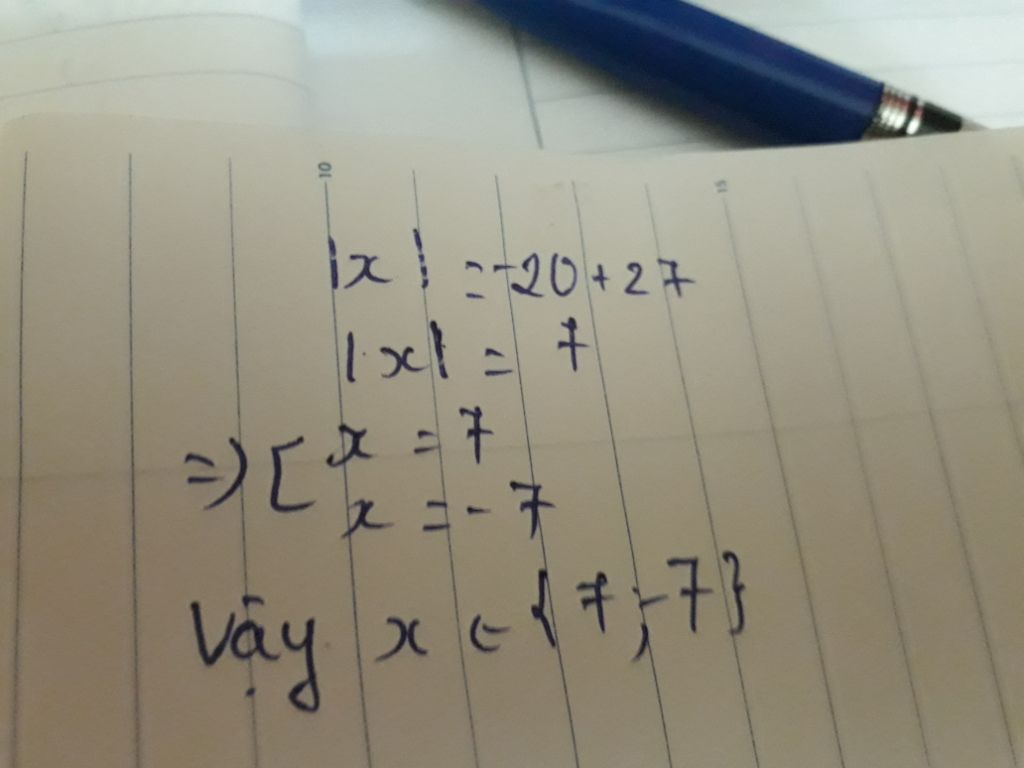 10
15
|x| = -20 + 27
|x| = 7
=> [ x = 7
x = - 7
Vậy x ∈ { 7 ; -7 }